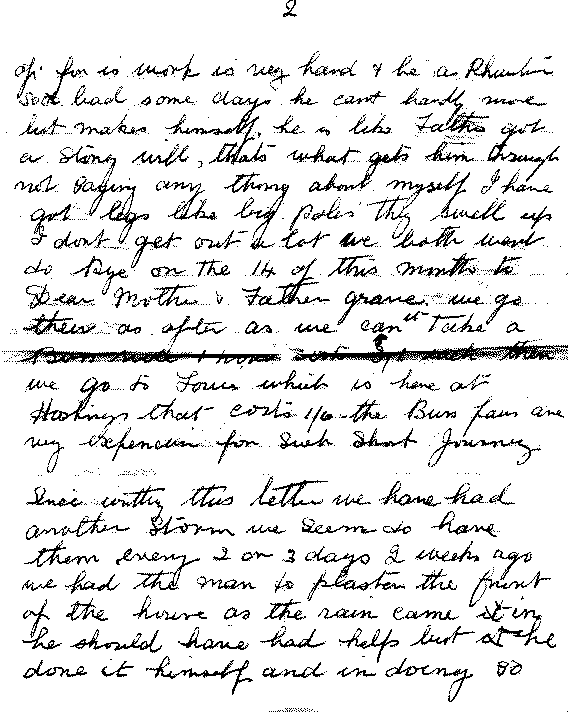 2
of for is work is very hard & he a
bad some days he cant hardly move
but makes himself, he is like Father got
a Stong will, thats what gets him through
not saying any thing about myself I have
got legs like big poles they swell up
I dont get out a lot we both went
do Rye on the 14 of this month to
Dear Mother & Father grave. we go
there as after as we can Take a
Buss
we go to Louis which is here at
Hastings that costs 1/6 the Buss fairs are
very expencive for Such Short Journey
Since writing this letter we have had
another Storm we Seem do have
them every 2 or 3 days 2 weeks ago
we had the man to plaster the front
of the house as the rain came in
he should have had help but he
done it himself and in doing so